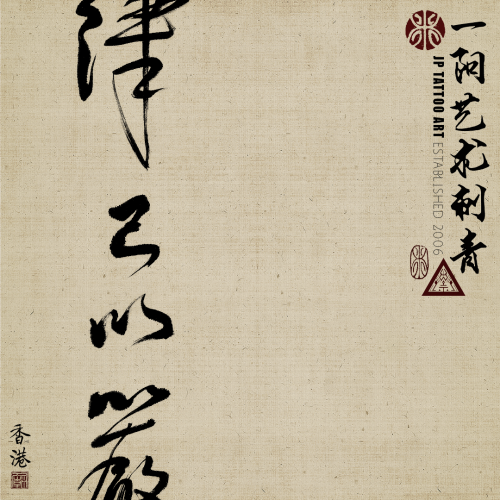 一阳艺术刺青
JP TATTOO ART ESTABLISHED 2006
律己以嚴
香港